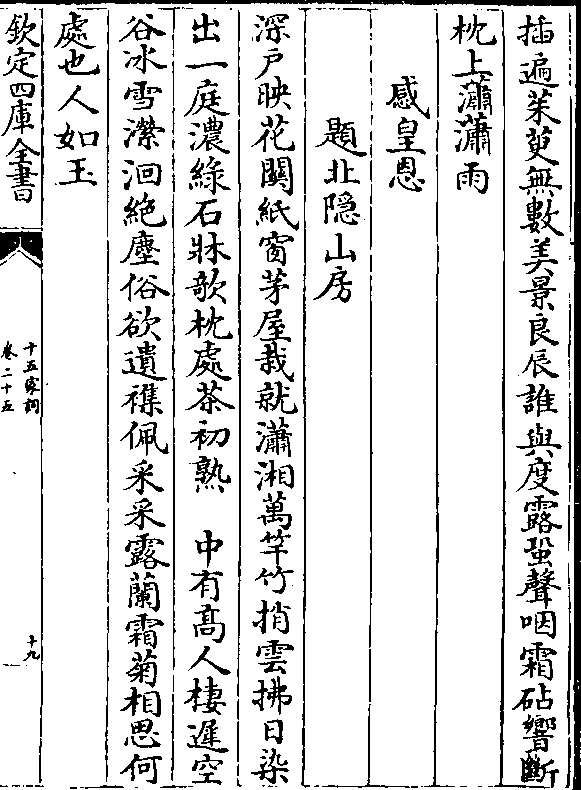 插遍茱萸無數美景良辰誰與度露蛩聲咽霜砧響斷
枕上瀟瀟雨
感皇恩
題北隠山房
深戸映花關紙窗茅屋栽就瀟湘萬竿竹捎雲拂日染
出一庭濃綠石牀欹枕處茶初熟　中有髙人棲遲空
谷冰雪瀠洄絶塵俗欲遺襍佩采采露蘭霜菊相思何
處也人如玉
欽定四庫全書
十五家詞
卷二十五
十九